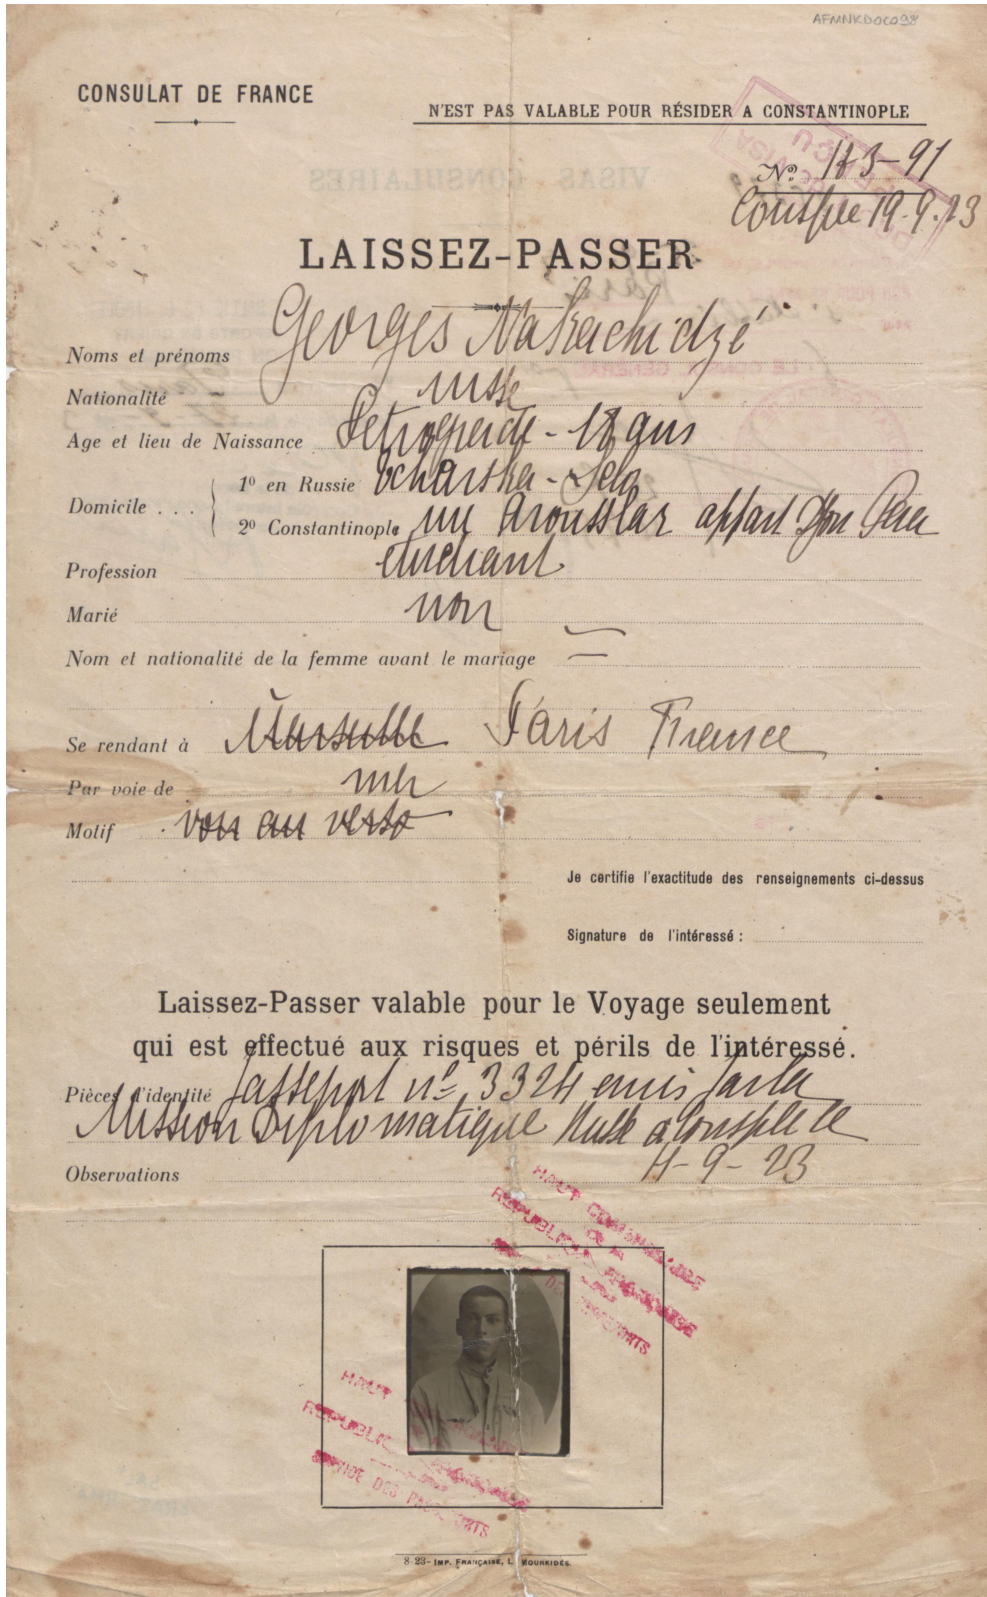 AFMNKDOC098
CONSULAT DE FRANCE
N'EST PAS VALABLE POUR RÉSIDER A CONSTANTINOPLE
N° 183-91
Constple 19.9.23
LAISSEZ-PASSER
Noms et prénoms Georges Nakachidzé
Nationalité russe
Age et lieu de Naissance 18 ans
Domicile . . .
1° en Russie Tcharskoe-Selo
2° Constantinople appart
Profession etudiant
Marié non
Nom et nationalité de la femme avant le mariage —
Se rendant à Marseille Paris France
Par voie de mer
Motif voir au verso
Je certifie l'exactitude des renseignements ci-dessus
Signature de l'intéressé :
Laissez-Passer valable pour le Voyage seulement
qui est effectué aux risques et périls de l'intéressé.
Pièces d'identité Passeport n° 3324 emis par la
Mission Diplomatique Russe a Constple le
Observations 11-9-23
HAUT COMMISSAIRE
DE LA
REPUBLIQUE FRANÇAISE
SERVICE DES PASSEPORTS
HAUT
REPUBLIQUE FRANÇAISE
SERVICE DES PASSEPORTS
8-23- IMP. FRANÇAISE, L. MOURKIDÈS.